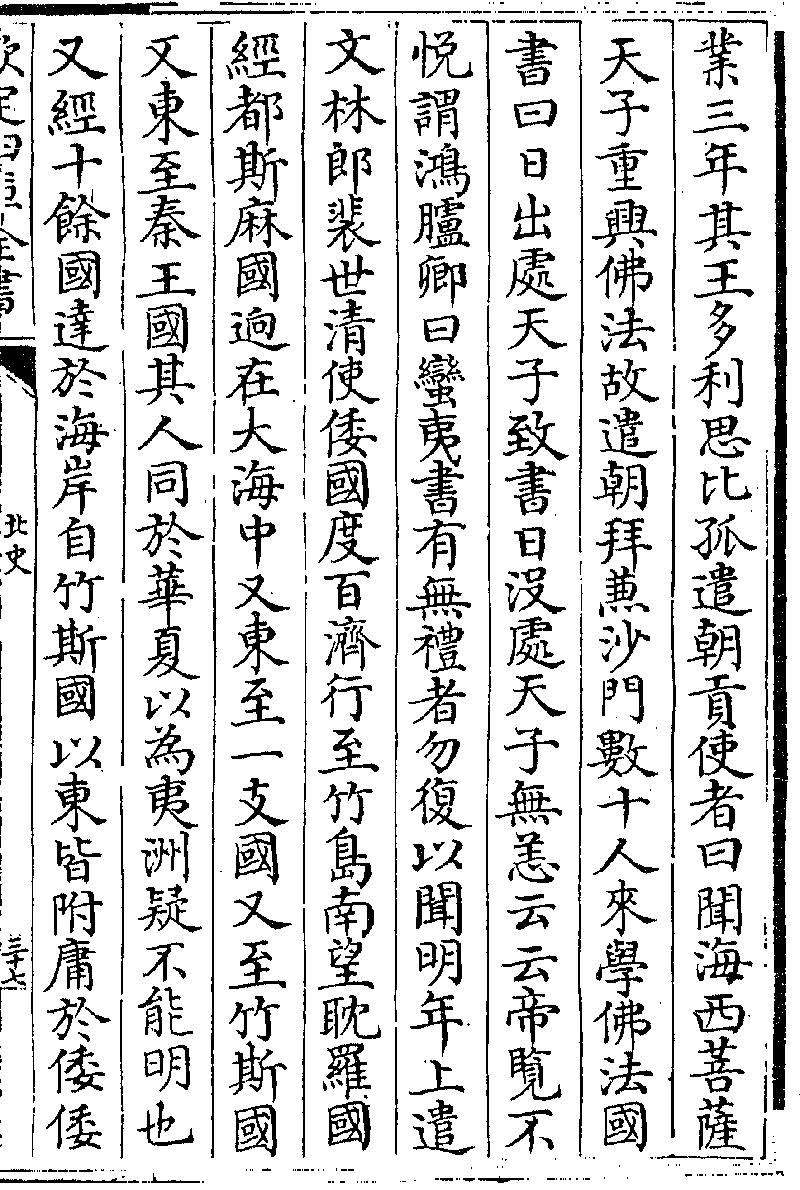 業三年其王多利思比孤遣朝貢使者曰聞海西菩薩
天子重興佛法故遣朝拜兼沙門數十人來學佛法國
書曰日出處天子致書日沒處天子無恙云云帝覽不
悅謂鴻臚卿曰蠻夷書有無禮者勿復以聞明年上遣
文林郎裴世清使倭國度百濟行至竹島南望耽羅國
經都斯麻國迥在大海中又東至一支國又至竹斯國
又東至秦王國其人同於華夏以為夷洲疑不能明也
又經十餘國達於海岸自竹斯國以東皆附庸於倭倭
欽定四庫全書
北史
三十七